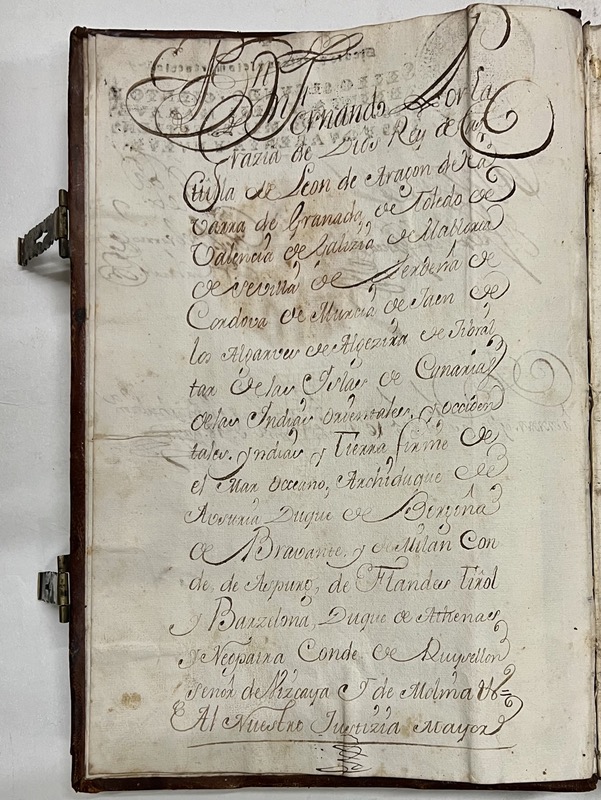 Dn Fernando Por la
Grazia de Dios Rey de Cas
tilla de Leon de Aragon de Na
varra de Granada, de Toledo de
Valencia de Galizia de Mallorca
de Sevilla de Serdeña de
Cordova de Murcia de Jaen de
los Algarves de Algezira de Jibral
tar de las Islas de Canarias
de las Indias orientales, y occiden
tales. yndias y Tierra firme de
el Mar occeano, Archiduque de
Austria Duque de Borgoña
de Bravante, y de Milan Con
de, de Aspurg, de Flandes Tirol
y Barzelona, Duque de Athenas
y Neopatra Conde de Ruysellon
señor de Vizcaya y de Molina &=
Al Nuestro Justizia Mayor